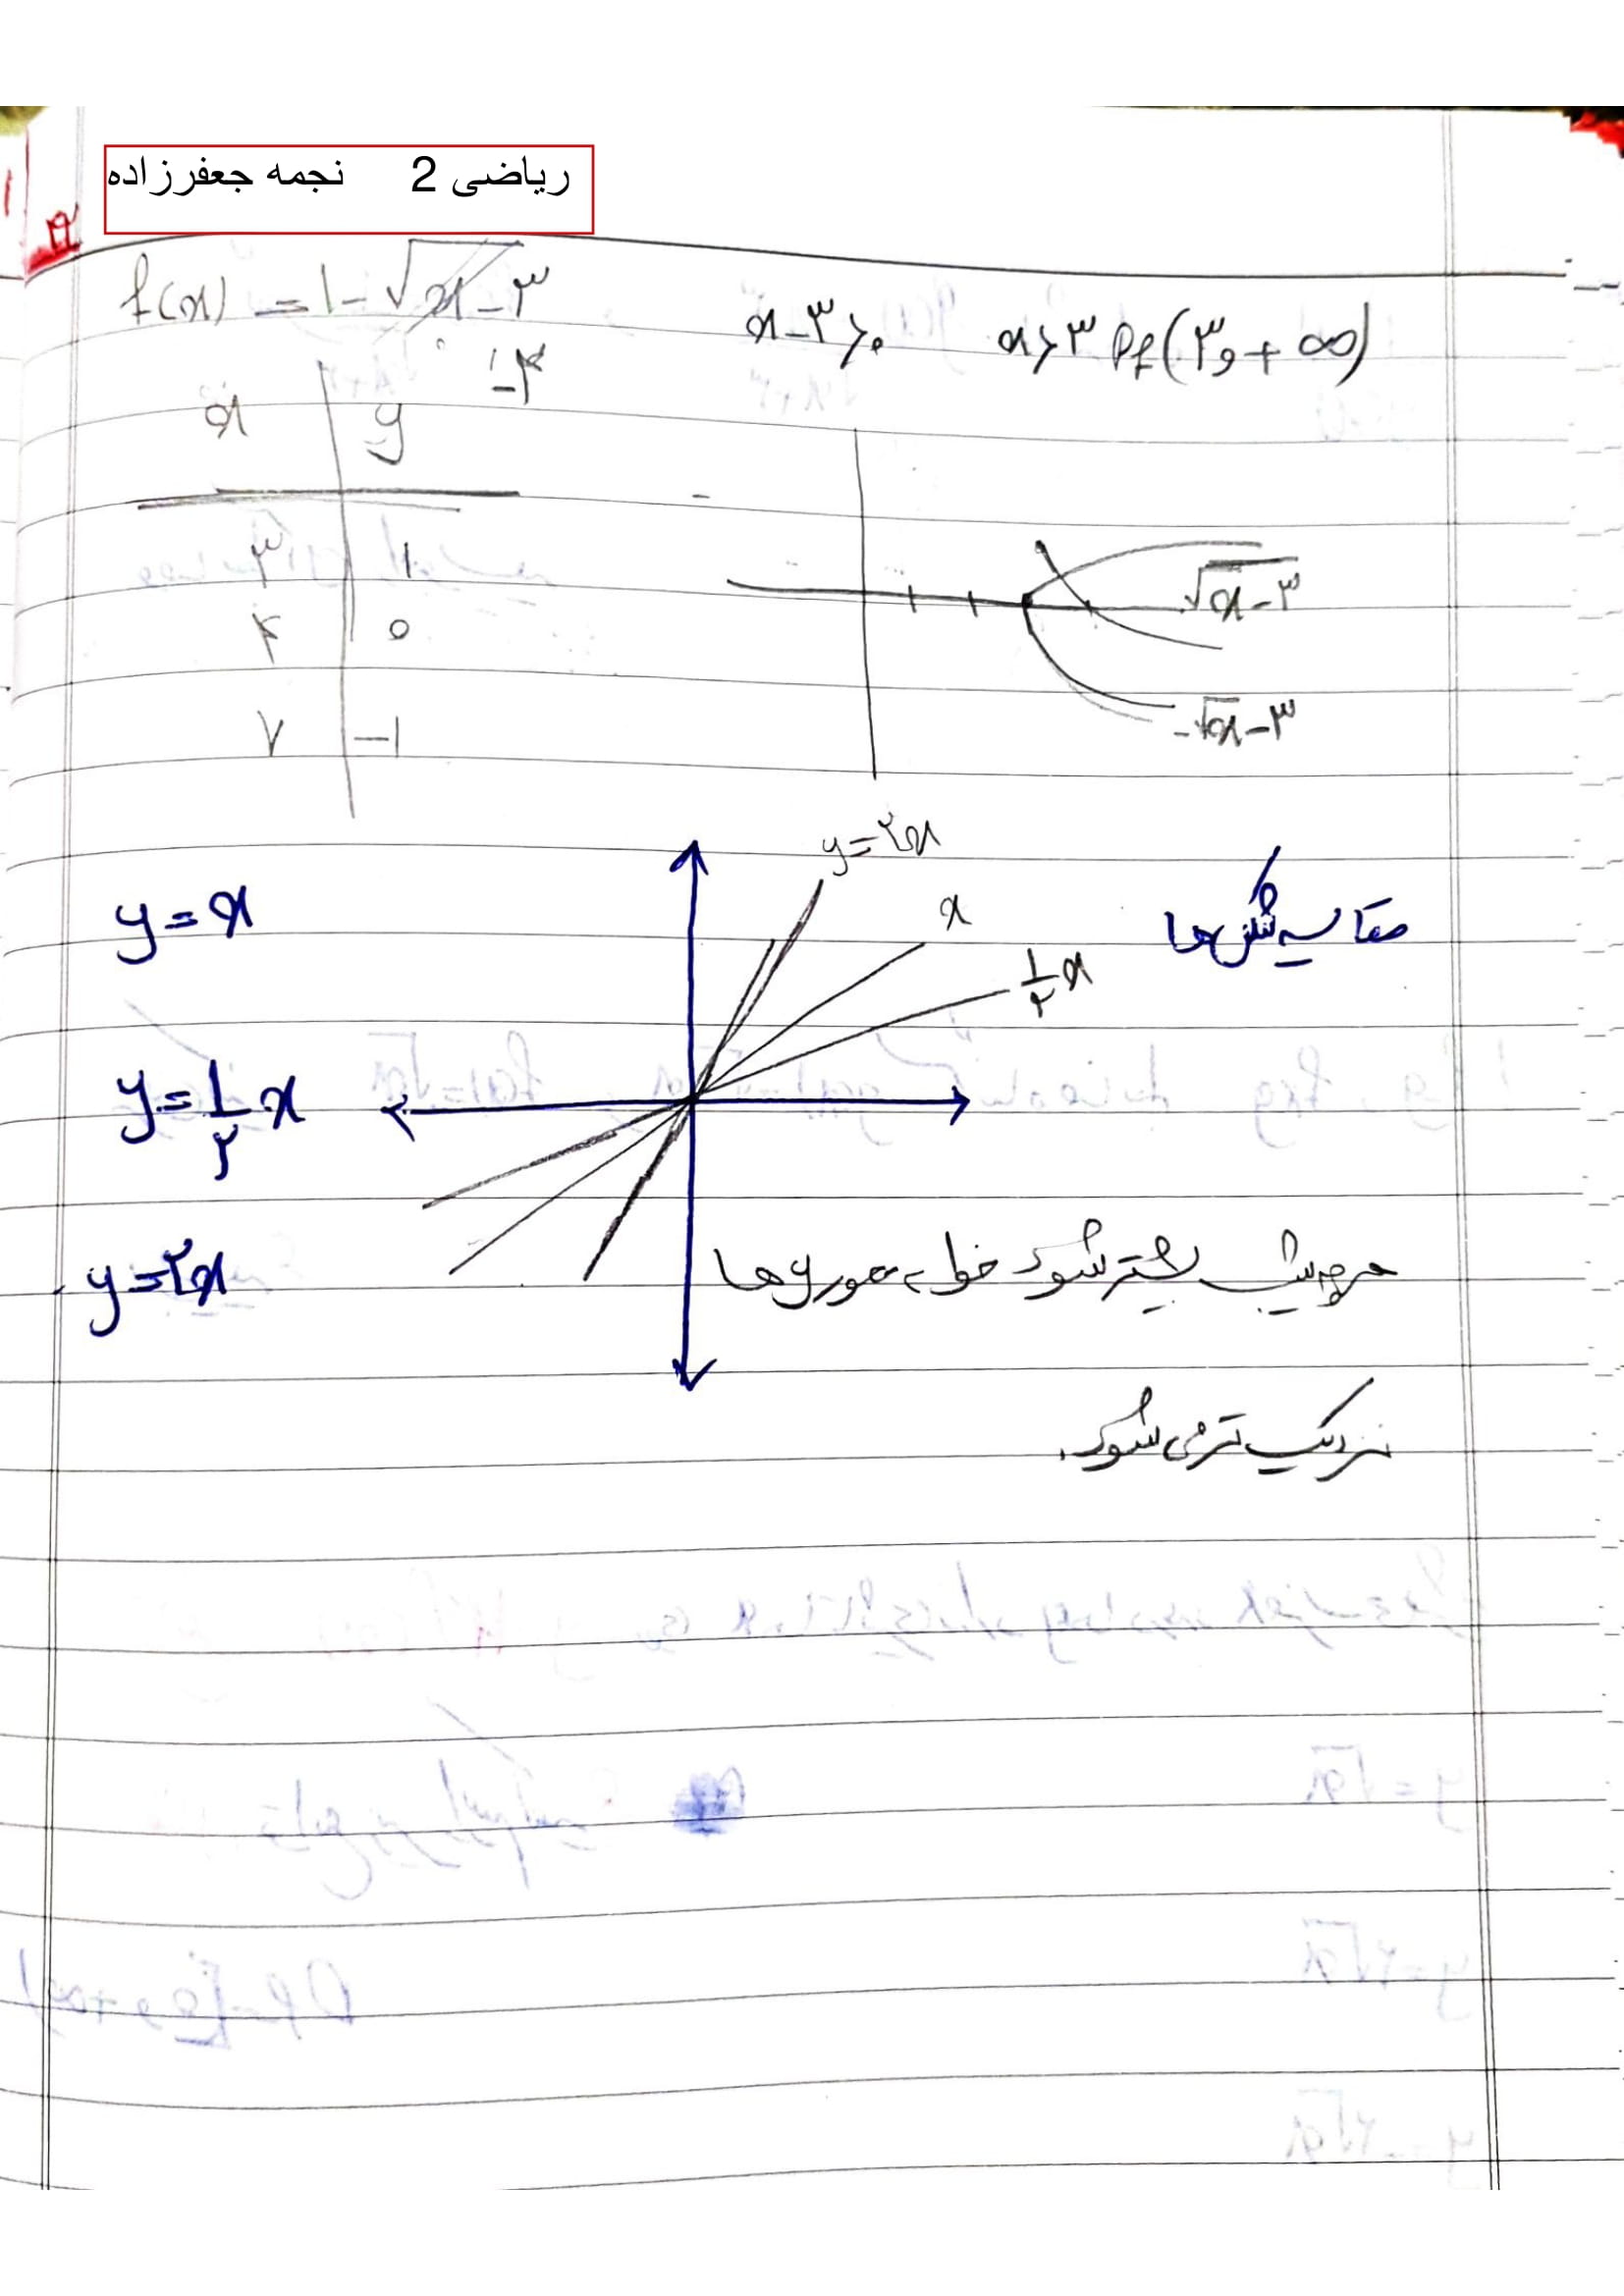 ریاضی 2 نجمه جعفرزاده
f(x) = ۱ - √x-۳
x-۳ ≥ ۰ x ≥ ۳ Df(۳ و + ∞)
x y
۳ ۱
۴ ۰
۷ -۱
√x-۳
-√x-۳
y=۲x
y = x
x
مقایسه شیب ها
۱/۲ x
y = ۱/۲ x
y = ۲x
هرچه شیب بیشتر شود خط به محور y ها
نزدیک تر می شود.